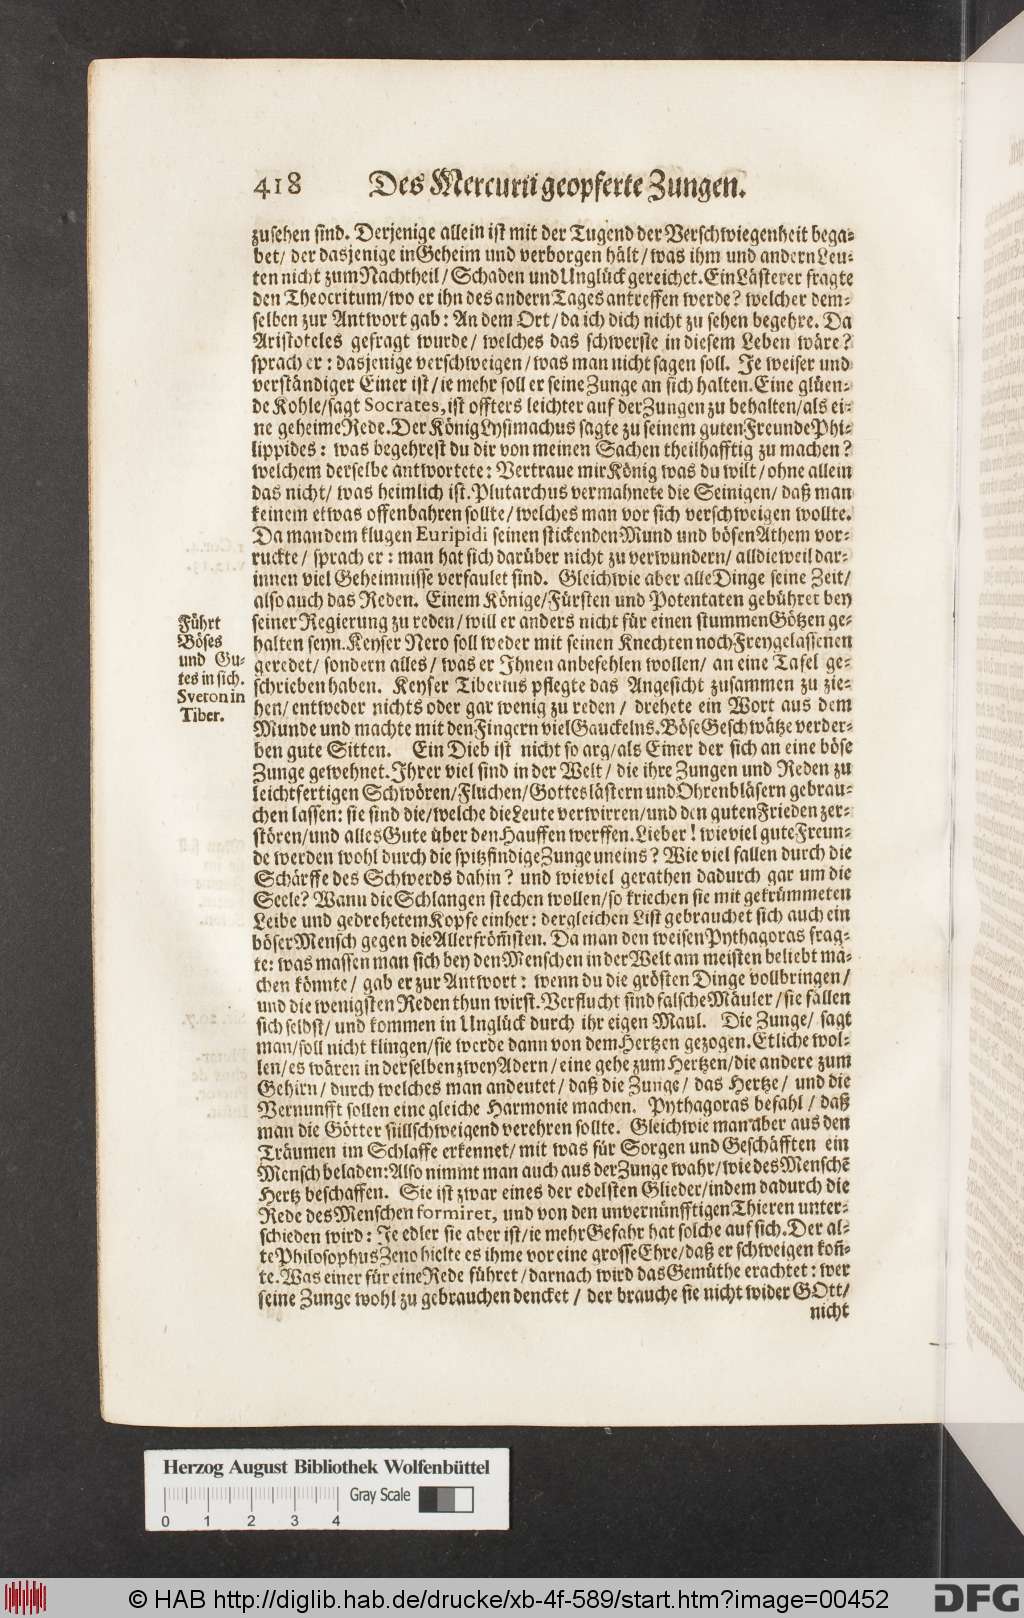 418 Des Mercurii geopferte Zungen.
zusehen sind. Derjenige allein ist mit der Tugend der Verschwiegenheit bega-
bet/ der dasjenige in Geheim und verborgen hält/ was ihm und andern Leu-
ten nicht zum Nachtheil/ Schaden und Unglück gereichet. Ein Lästerer fragte
den Theocritum/ wo er ihn des andern Tages antreffen werde? welcher dem-
selben zur Antwort gab: An dem Ort/ da ich dich nicht zu sehen begehre. Da
Aristoteles gefragt wurde/ welches das schwerste in diesem Leben wäre?
sprach er: dasjenige verschweigen/ was man nicht sagen soll. Je weiser und
verständiger Einer ist/ ie mehr soll er seine Zunge an sich halten. Eine glüen-
de Kohle/ sagt Socrates, ist offters leichter auf der Zungen zu behalten/ als ei-
ne geheime Rede. Der König Lysimachus sagte zu seinem guten Freunde Phi-
lippides: was begehrest du dir von meinen Sachen theilhafftig zu machen?
welchem derselbe antwortete: Vertraue mir König was du wilt/ ohne allein
das nicht/ was heimlich ist. Plutarchus vermahnete die Seinigen/ daß man
keinem etwas offenbahren sollte/ welches man vor sich verschweigen wollte.
Da man dem klugen Euripidi seinen stickenden Mund und bösen Athem vor-
ruckte/ sprach er: man hat sich darüber nicht zu verwundern/ alldieweil dar-
innen viel Geheimnisse verfaulet sind. Gleichwie aber alle Dinge seine Zeit/
also auch das Reden. Einem Könige/ Fürsten und Potentaten gebühret bey
seiner Regierung zu reden/ will er anders nicht für einen stummen Götzen ge-
halten seyn. Keyser Nero soll weder mit seinen Knechten noch Freygelassenen
geredet/ sondern alles/ was er Ihnen anbefehlen wollen/ an eine Tafel ge-
schrieben haben. Keyser Tiberius pflegte das Angesicht zusammen zu zie-
hen/ entweder nichts oder gar wenig zu reden/ drehete ein Wort aus dem
Munde und machte mit den Fingern viel Gauckelns. Böse Geschwätze verder-
ben gute Sitten. Ein Dieb ist nicht so arg/ als Einer der sich an eine böse
Zunge gewehnet. Ihrer viel sind in der Welt/ die ihre Zungen und Reden zu
leichtfertigen Schwören/ Fluchen/ Gotteslästern und Ohrenbläsern gebrau-
chen lassen: sie sind die/ welche die Leute verwirren/ und den guten Frieden zer-
stören/ und alles Gute über den Hauffen werffen. Lieber! wieviel gute Freun-
de werden wohl durch die spitzfindige Zunge uneins? Wie viel fallen durch die
Schärffe des Schwerds dahin? und wieviel gerathen dadurch gar um die
Seele? Wann die Schlangen stechen wollen/ so kriechen sie mit gekrümmeten
Leibe und gedrehetem Kopfe einher: dergleichen List gebrauchet sich auch ein
böser Mensch gegen die Allerfröm̃sten. Da man den weisen Pythagoras frag-
te: was massen man sich bey den Menschen in der Welt am meisten beliebt ma-
chen könnte/ gab er zur Antwort: wenn du die grösten Dinge vollbringen/
und die wenigsten Reden thun wirst. Verflucht sind falsche Mäuler/ sie fallen
sich selbst/ und kommen in Unglück durch ihr eigen Maul. Die Zunge/ sagt
man/ soll nicht klingen/ sie werde dann von dem Hertzen gezogen. Etliche wol-
len/ es wären in derselben zwey Adern/ eine gehe zum Hertzen/ die andere zum
Gehirn/ durch welches man andeutet/ daß die Zunge/ das Hertze/ und die
Vernunfft sollen eine gleiche Harmonie machen. Pythagoras befahl/ daß
man die Götter stillschweigend verehren sollte. Gleichwie man aber aus den
Träumen im Schlaffe erkennet/ mit was für Sorgen und Geschäfften ein
Mensch beladen: Also nimmt man auch aus der Zunge wahr/ wie des Menschẽ
Hertz beschaffen. Sie ist zwar eines der edelsten Glieder/ indem dadurch die
Rede des Menschen formiret, und von den unvernünfftigen Thieren unter-
schieden wird: Je edler sie aber ist/ ie mehr Gefahr hat solche auf sich. Der al-
te Philosophus Zeno hielte es ihme vor eine grosse Ehre/ daß er schweigen kon̄-
te. Was einer für eine Rede führet/ darnach wird das Gemüthe erachtet: wer
seine Zunge wohl zu gebrauchen dencket/ der brauche sie nicht wider GOtt/
nicht
Führt
Böses
und Gu-
tes in sich.
Sveton in
Tiber.
Herzog August Bibliothek Wolfenbüttel
Gray Scale
0 1 2 3 4
© HAB http://diglib.hab.de/drucke/xb-4f-589/start.htm?image=00452
DFG